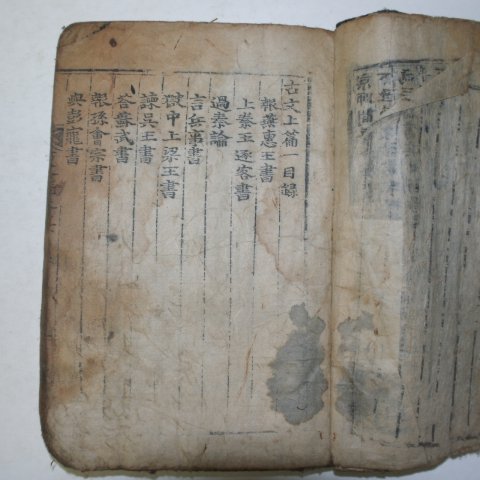 古文上篇一目録
報燕惠王書
上秦王逐客書
過秦論
言兵事書
獄中上梁王書
諫吳王書
答蘇武書
報孫會宗書
與彭寵書